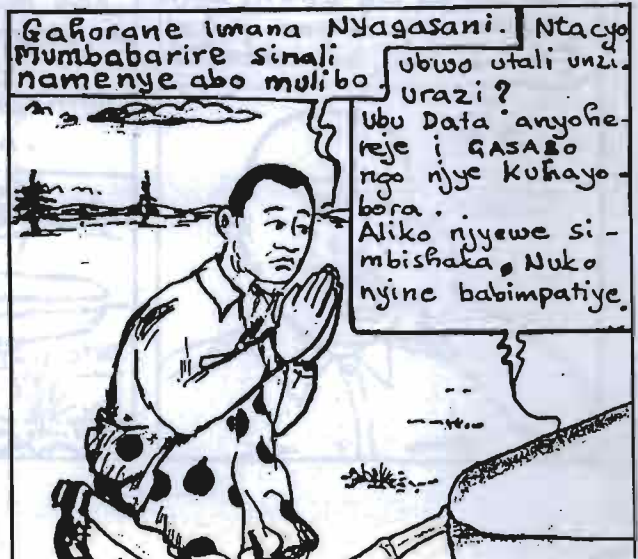 Gahorane imana Nyagasani.
Mumbabarire sinali
namenye abo mulibo
Ntacyo
ubwo utali unzi.
urazi?
ubu Data anyohe-
reje i GASABO
ngo njye kuhayo-
bora.
Aliko njyewe si-
mbishaka, Nuko
nyine babimpatiye.